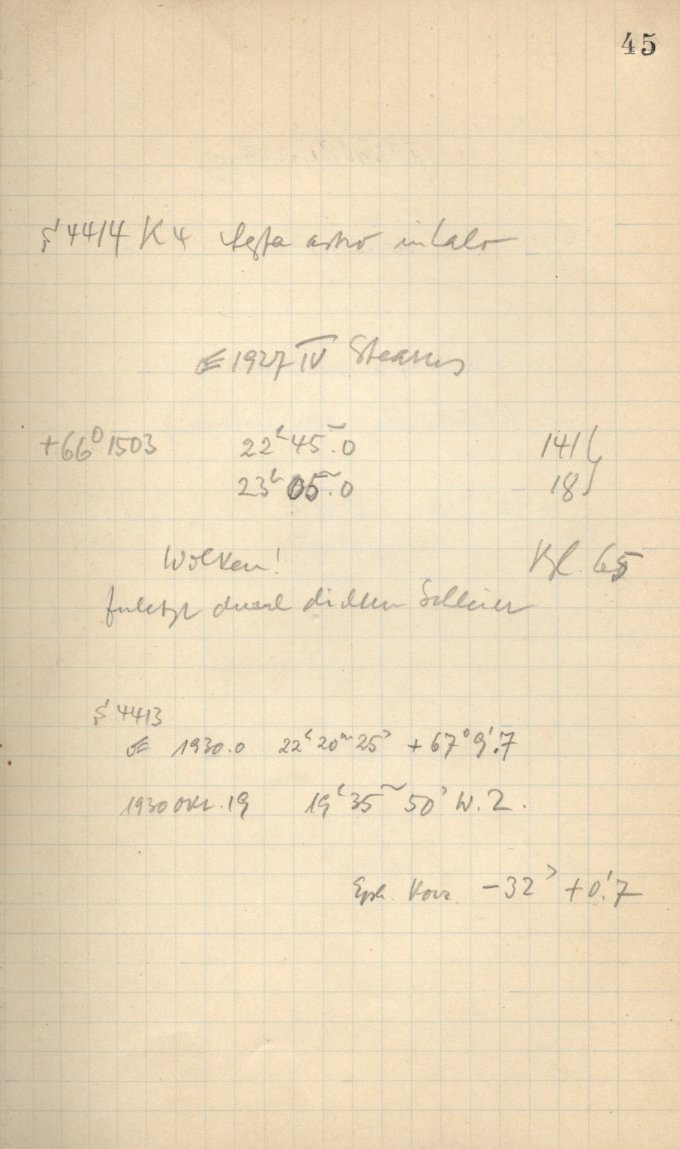 45
4414 K4 astro in
☄ 1927 IV Stearns
+66° 1503 22ʰ 45ᵐ.0 141
23ʰ 05ᵐ.0 18
Wolken! Kl. 65
zuletzt durch dichten Schleier
4413
☄ 1930.0 22ʰ 20ᵐ 25ˢ +67° 9'.7
1930 Okt. 19 19ʰ 35ᵐ 50ˢ W.Z.
Eph. Korr. −32ˢ +0'.7